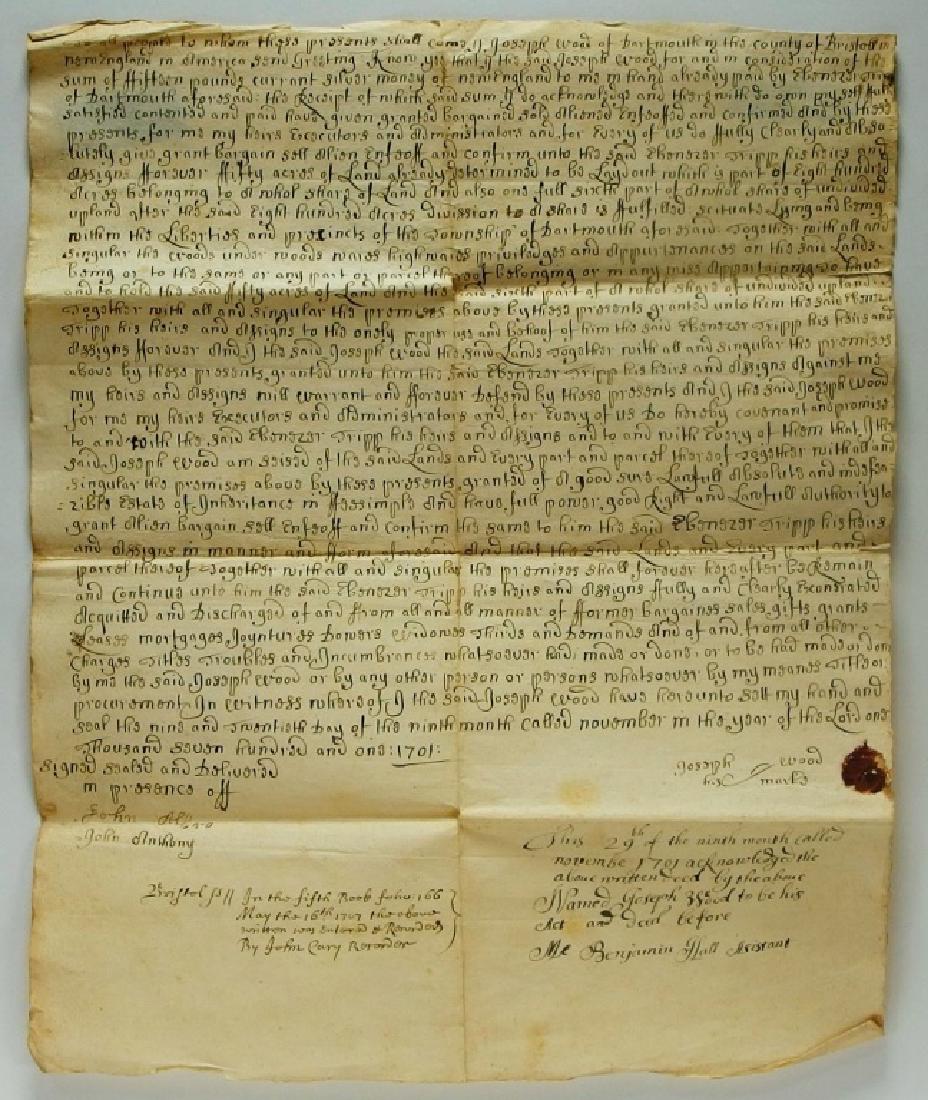 all people to whom these presents shall come I Joseph Wood of Dartmouth in the county of Bristoll in
newEngland in America send Greeting Know yee that I the said Joseph Wood for and in consideration of the
sum of ffifteen pounds currant silver money of newEngland to me in hand already paid by Ebenezer
of Dartmouth aforesaid: the Receipt of which said sum I do acknowledge and therewith do own my self fully
satisfied contented and paid have given granted bargained sold Aliened Enfeoffed and confirmed And by these
presents for me my heirs Executors and Administrators and for Every of us do ffully Clearly and Abso
=lutely give grant bargain sell Alien Enfeoff and confirm unto the said Ebenezer Tripp his heirs and
Assigns fforever ffifty acres of Land already determined to be Layd out which is part of Eight hundred
Acres belonging to A whol share of Land And also one full sixth part of A whol share of undivided
upland after the said Eight hundred Acres division to A share is ffulfilled scituate Lying and being
within the Liberties and precincts of the Township of Dartmouth aforesaid: Together with all and
singular the woods under woods waies highwaies priviledges and Appurtenances on the said Lands
being or to the same or any part or parcel thereof belonging or in any wise Appertaining To have
and to hold the said ffifty acres of Land And the said sixth part of A whol share of undivided upland
Together with all and singular the premises above by these presents granted unto him the said Ebenezer
Tripp his heirs and Assigns to the onely proper use and behoof of him the said Ebenezer Tripp his heirs and
Assigns fforever And I the said Joseph Wood the said Lands Together with all and singular the premises
above by these presents granted unto him the said Ebenezer Tripp his heirs and Assigns Against me
my heirs and Assigns will warrant and fforever Defend by these presents And I the said Joseph Wood
for me my heirs Executors and Administrators and for Every of us Do hereby covenant and promise
to and with the said Ebenezer Tripp his heirs and Assigns and to and with Every of them that I the
said Joseph Wood am seised of the said Lands and Every part and parcel thereof Together with all and
singular the premises above by these presents granted of A good sure Lawfull Absolute and indefea
=zible Estate of Inheritance in ffeesimple And have full power good Right and Lawfull Authority to
grant Alien bargain sell Enfeoff and Confirm the same to him the said Ebenezer Tripp his heirs
and Assigns in manner and fform aforesaid And that the said Lands and Every part and
parcel thereof Together with all and singular the premises shall forever hereafter be Remain
and Continue unto him the said Ebenezer Tripp his heirs and Assigns ffully and Clearly Exonerated
Acquitted and Discharged of and ffrom all and all manner of fformer bargaines sales gifts grants
Leases mortgages Joyntures Dowers Widowes Thirds and Demands And of and from all other
Charges Titles Troubles and Incumbrances whatsoever had made or done, or to be had made or don
by me the said Joseph Wood or by any other person or persons whatsoever by my meanes Title or
procurement In Witness whereof I the said Joseph Wood have hereunto sett my hand and
seal the nine and Twentieth Day of the ninth month called november in the year of the Lord one
Thousand seven hundred and one: 1701:
Signed sealed and Delivered
in presence off
Joseph Wood
his mark
John
John Anthony
This 29th of the ninth month called
november 1701 acknowledged the
above written deed by the above
Named Joseph Wood to be his
Act and deed before
Me Benjamin Hall Assistant
Bristol ss In the fifth Book folio 166
May the 16th 1707 the above
written was Entered & Recorded
By John Cary Recorder